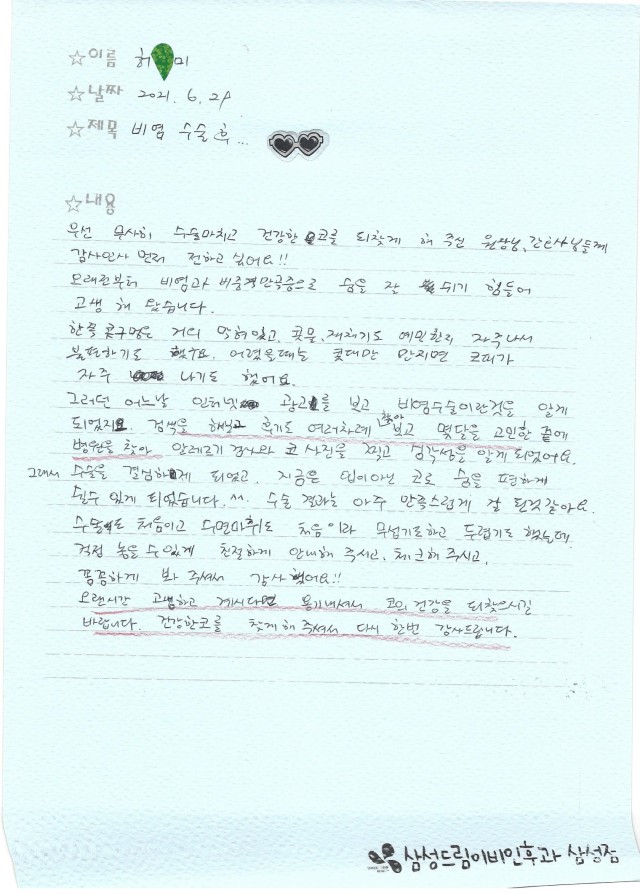 ☆이름 허 미
☆날짜 2021. 6. 29
☆제목 비염 수술 후...
☆내용
우선 무사히 수술마치고 건강한 코를 되찾게 해 주신 원장님, 간호사님들께
감사인사 먼저 전하고 싶어요!!
오래전부터 비염과 비중격만곡증으로 숨을 잘 쉬기 힘들어
고생 해 왔습니다.
한쪽 콧구멍은 거의 막혀있고, 콧물, 재채기도 예민한지 자주나서
불편하기도 했구요. 어렸을때는 콧대만 만지면 코피가
자주 나기도 했어요.
그러던 어느날 인터넷 광고를 보고 비염수술이란것을 알게
되었지요. 검색을 해보고 후기도 여러차례 찾아보고 몇달을 고민한 끝에
병원을 찾아 알레르기 검사와 코 사진을 찍고 심각성을 알게 되었어요.
그래서 수술을 결심하게 되었고, 지금은 입이아닌 코로 숨을 편하게
쉴수 있게 되었습니다. ^^. 수술 결과는 아주 만족스럽게 잘 된것 같아요.
수술도 처음이고 수면마취도 처음이라 무섭기도하고 두렵기도 했는데
걱정 놓을 수 있게 친절하게 안내해 주시고, 체크해 주시고,
꼼꼼하게 봐 주셔서 감사했어요!!
오랜시간 고생하고 계시다면 용기내셔서 코의 건강을 되찾으시길
바랍니다. 건강한코를 찾게 해 주셔서 다시 한번 감사드립니다.
삼성드림이비인후과 삼성점